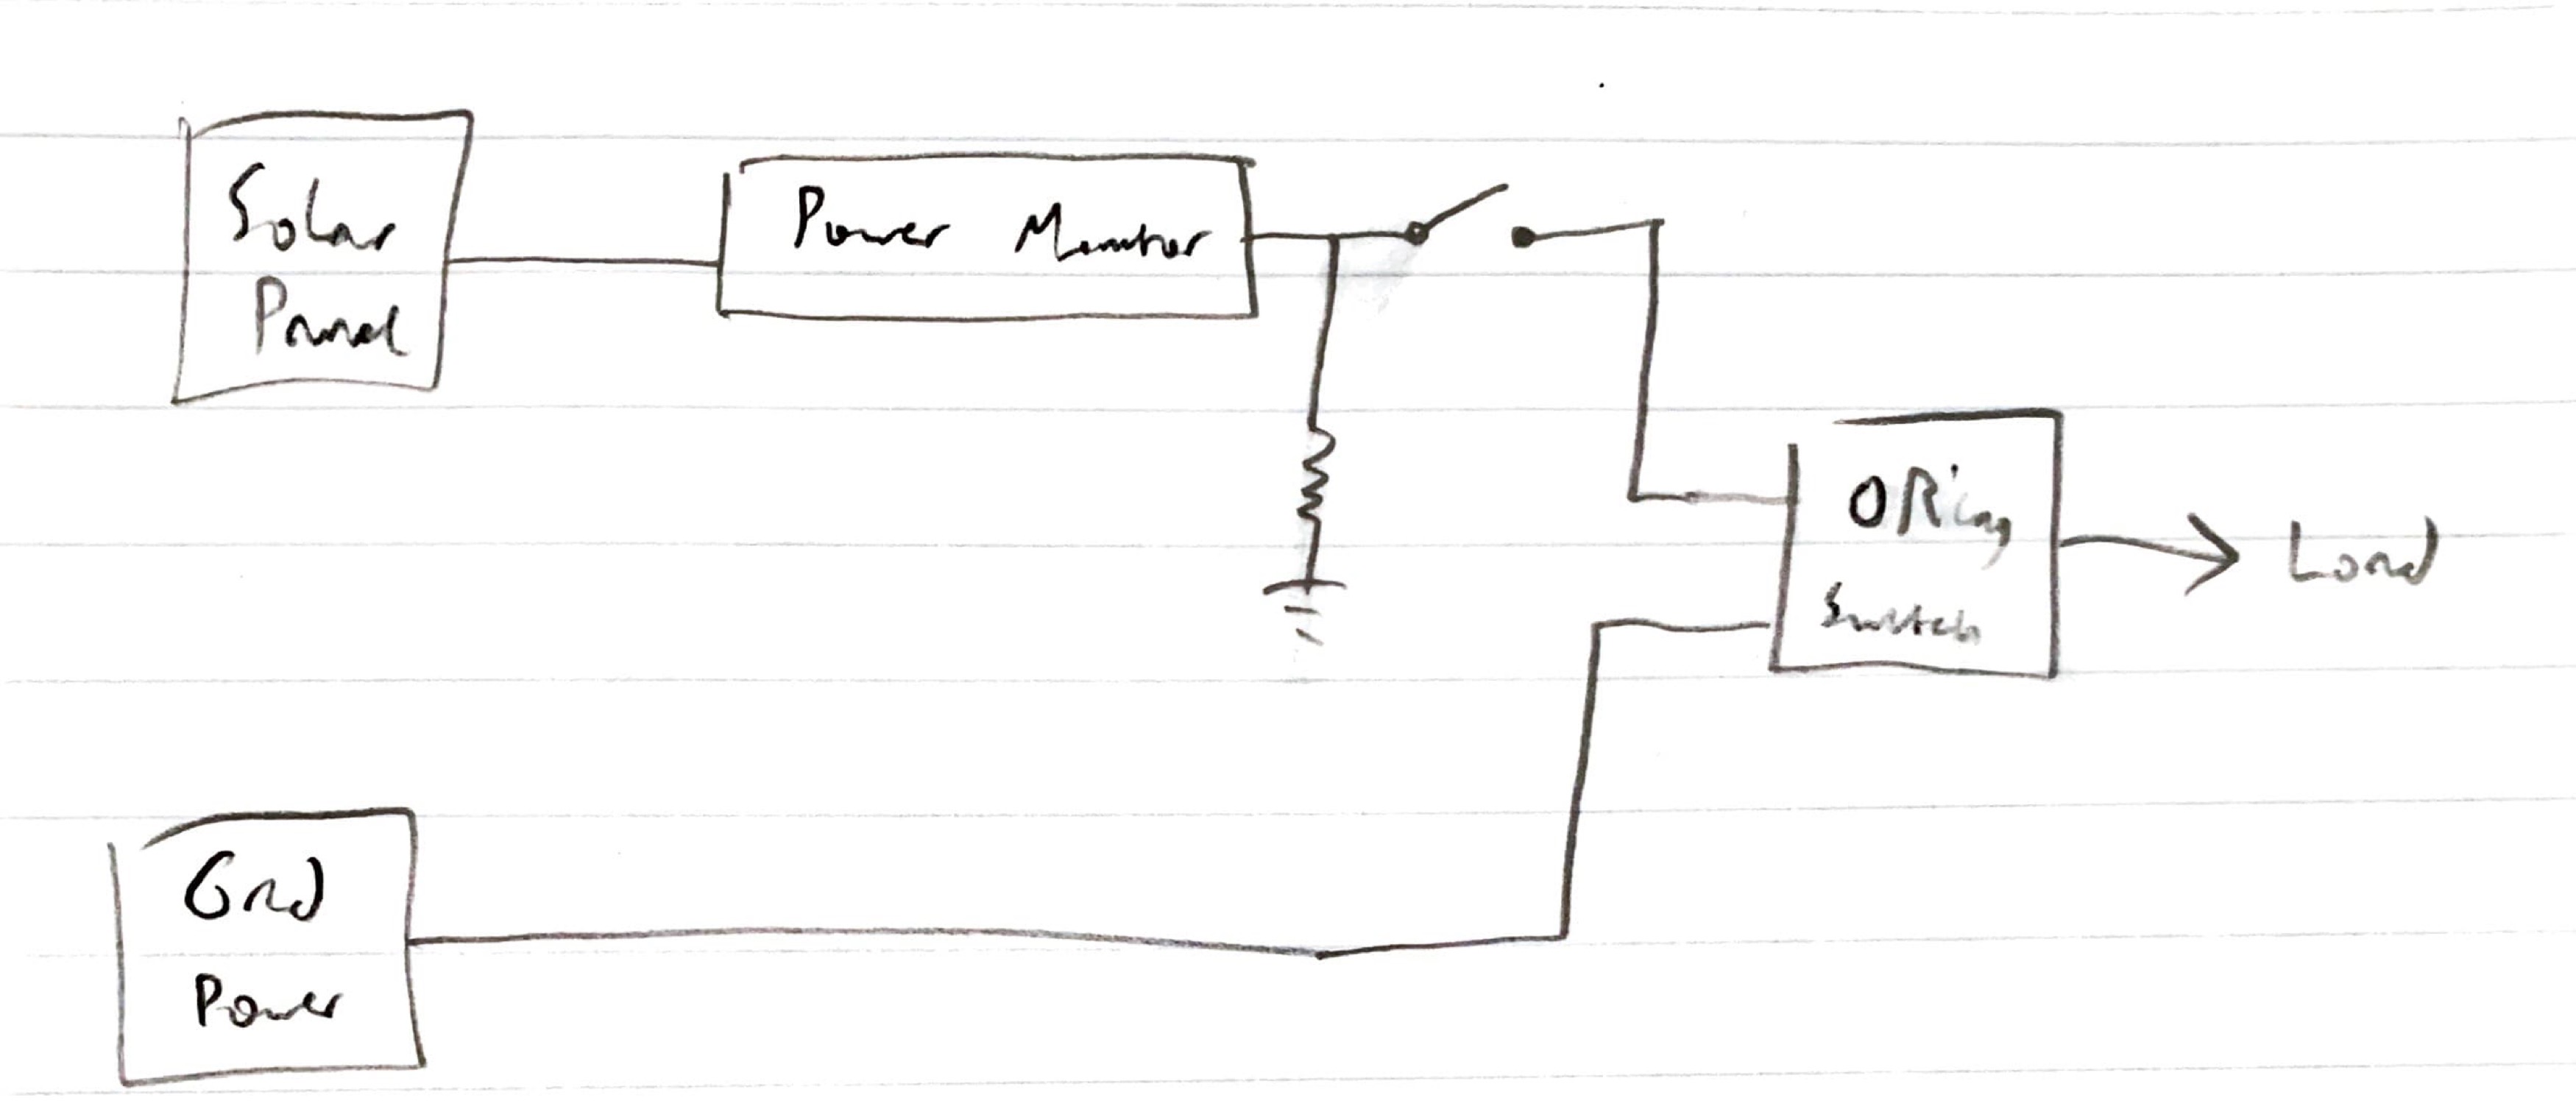 Solar
Panel
Power Monitor
ORing
Switch
Load
Grid
Power